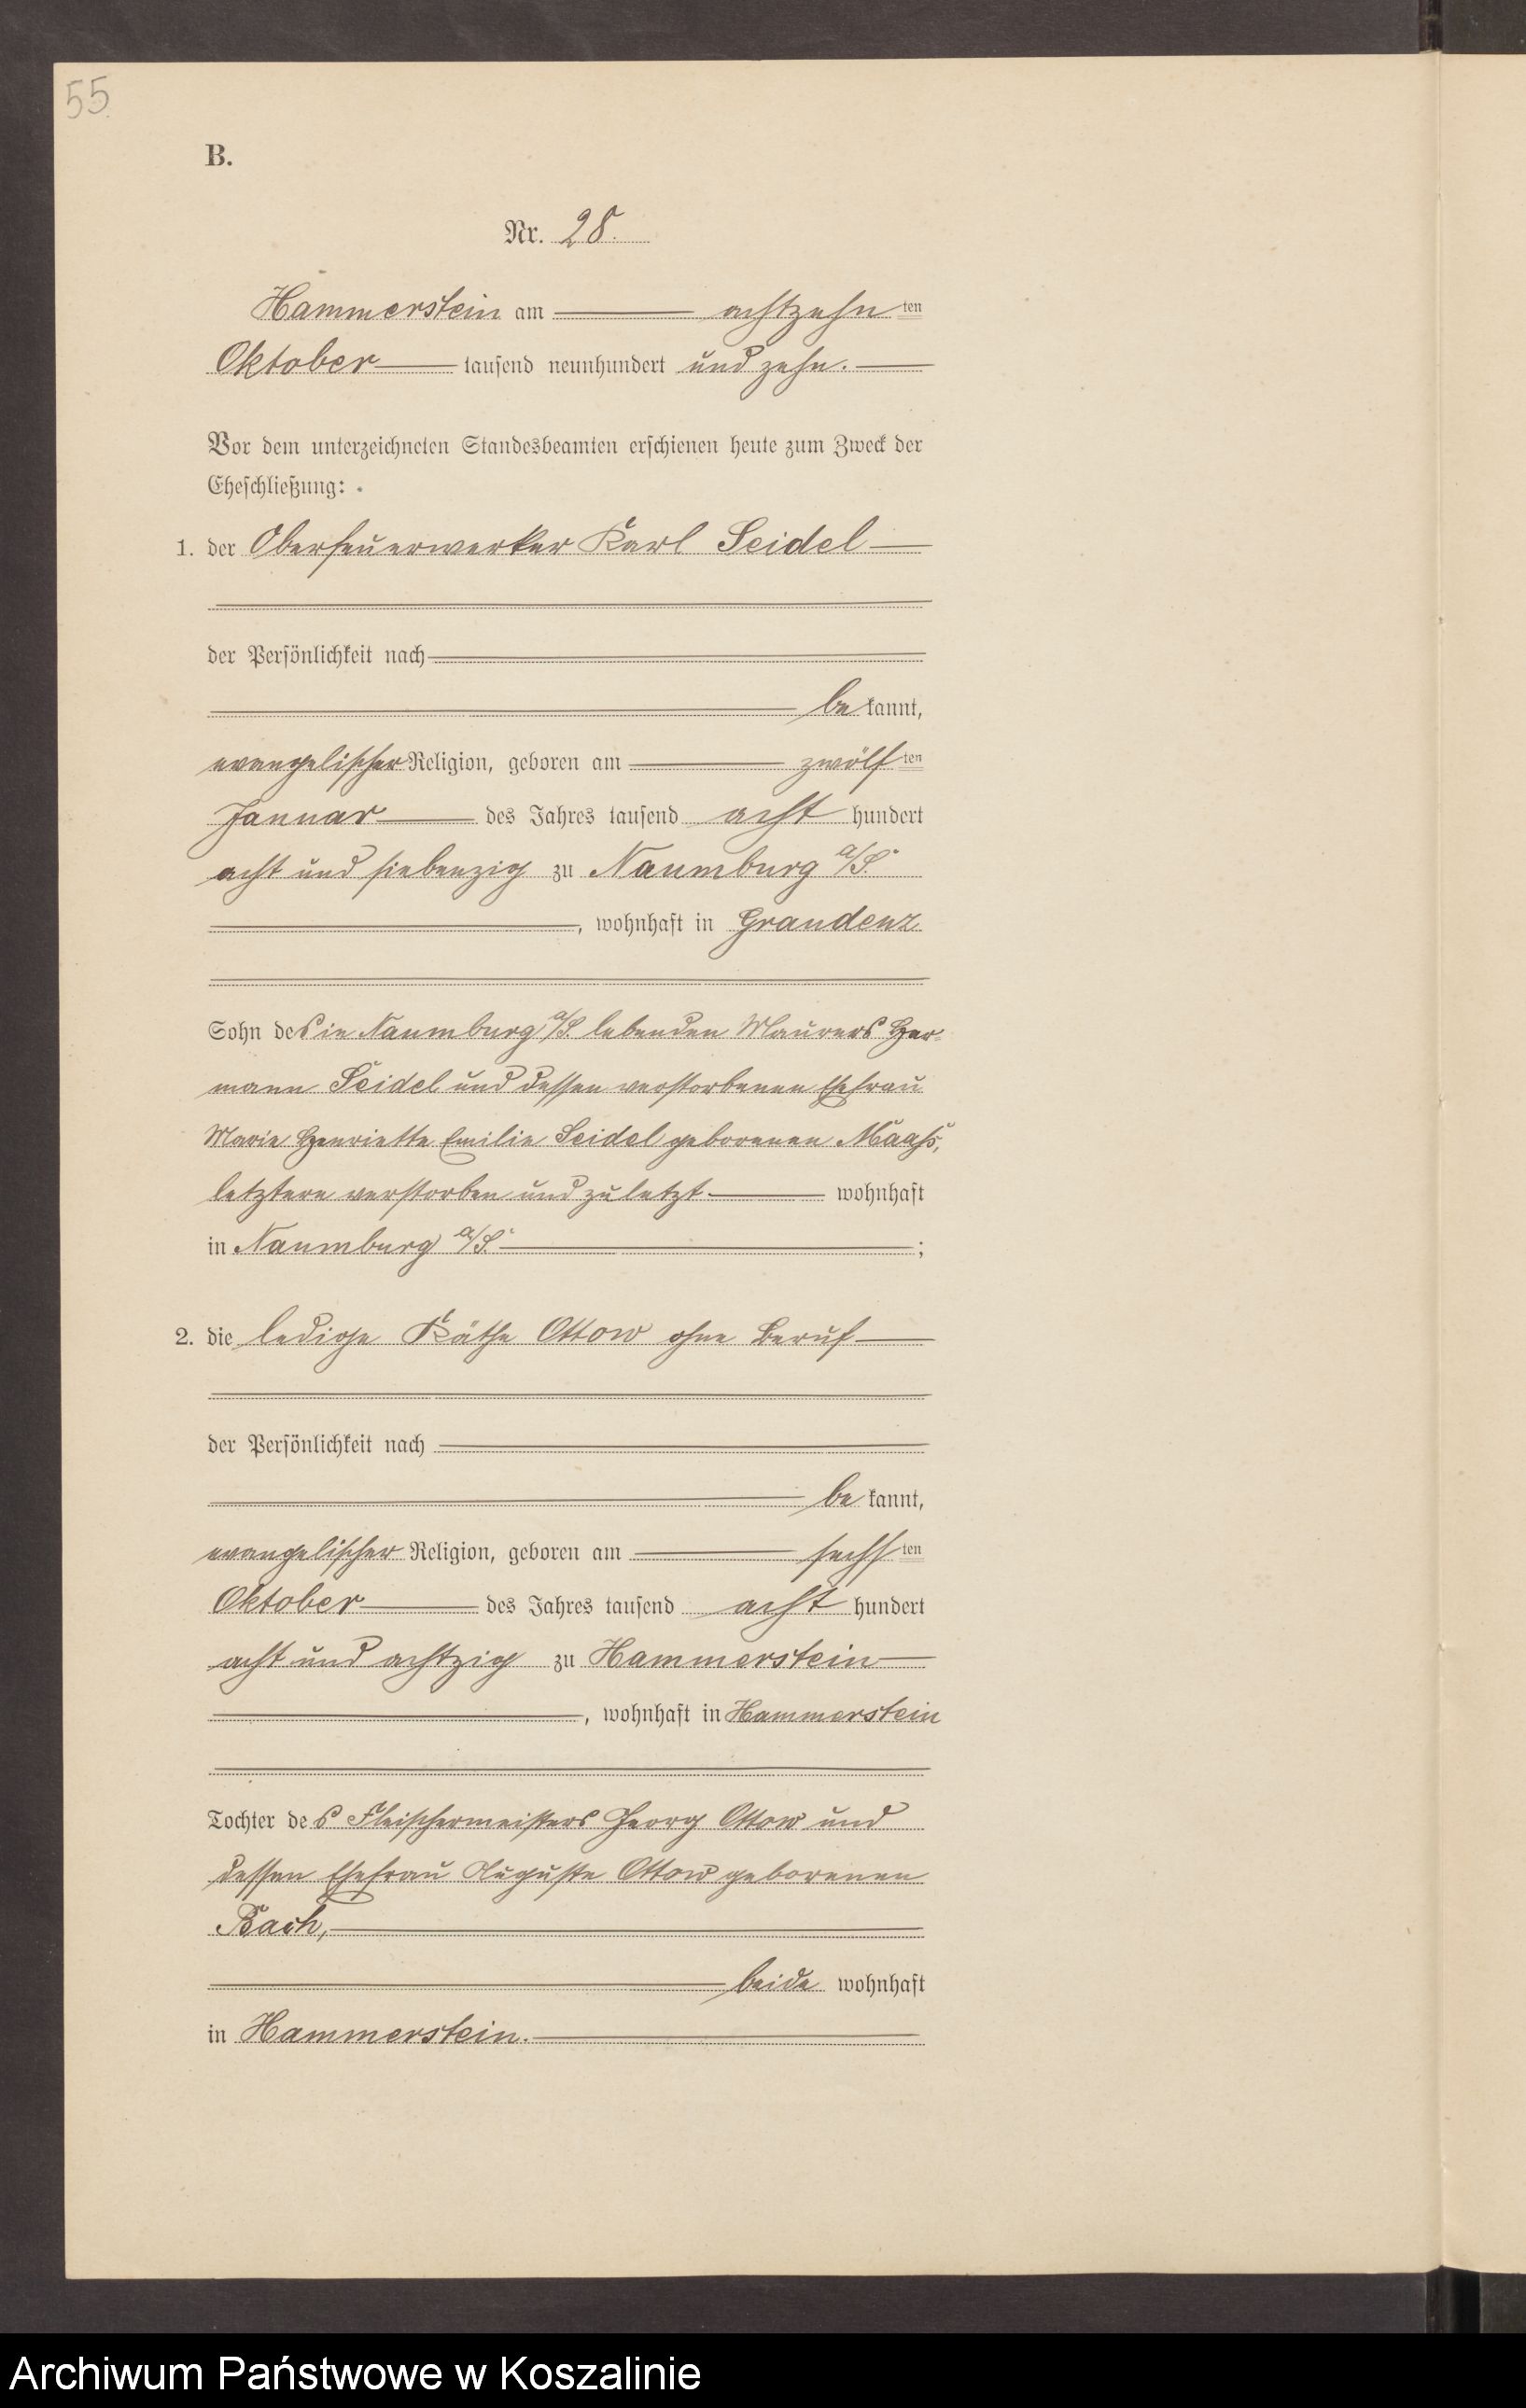 55.
B.
Nr. 28.
Hammerstein am achtzehn ten
Oktober tausend neunhundert und zehn.
Vor dem unterzeichneten Standesbeamten erschienen heute zum Zweck der
Eheschließung:
1. der Oberfeuerwerker Karl Seidel
der Persönlichkeit nach
be kannt,
evangelischer Religion, geboren am zwölf ten
Januar des Jahres tausend acht hundert
acht und siebenzig zu Naumburg a/S.
, wohnhaft in Graudenz
Sohn des in Naumburg a/S. lebenden Maurers Her-
mann Seidel und dessen verstorbenen Ehefrau
Marie Henriette Emilie Seidel geborenen Maaß,
letztere verstorben und zuletzt wohnhaft
in Naumburg a/S. ;
2. die ledige Käthe Ottow ohne Beruf
der Persönlichkeit nach
be kannt,
evangelischer Religion, geboren am sechs ten
Oktober des Jahres tausend acht hundert
acht und achtzig zu Hammerstein
, wohnhaft in Hammerstein
Tochter des Fleischermeisters Georg Ottow und
dessen Ehefrau Auguste Ottow geborenen
Bach,
beide wohnhaft
in Hammerstein.
Archiwum Państwowe w Koszalinie